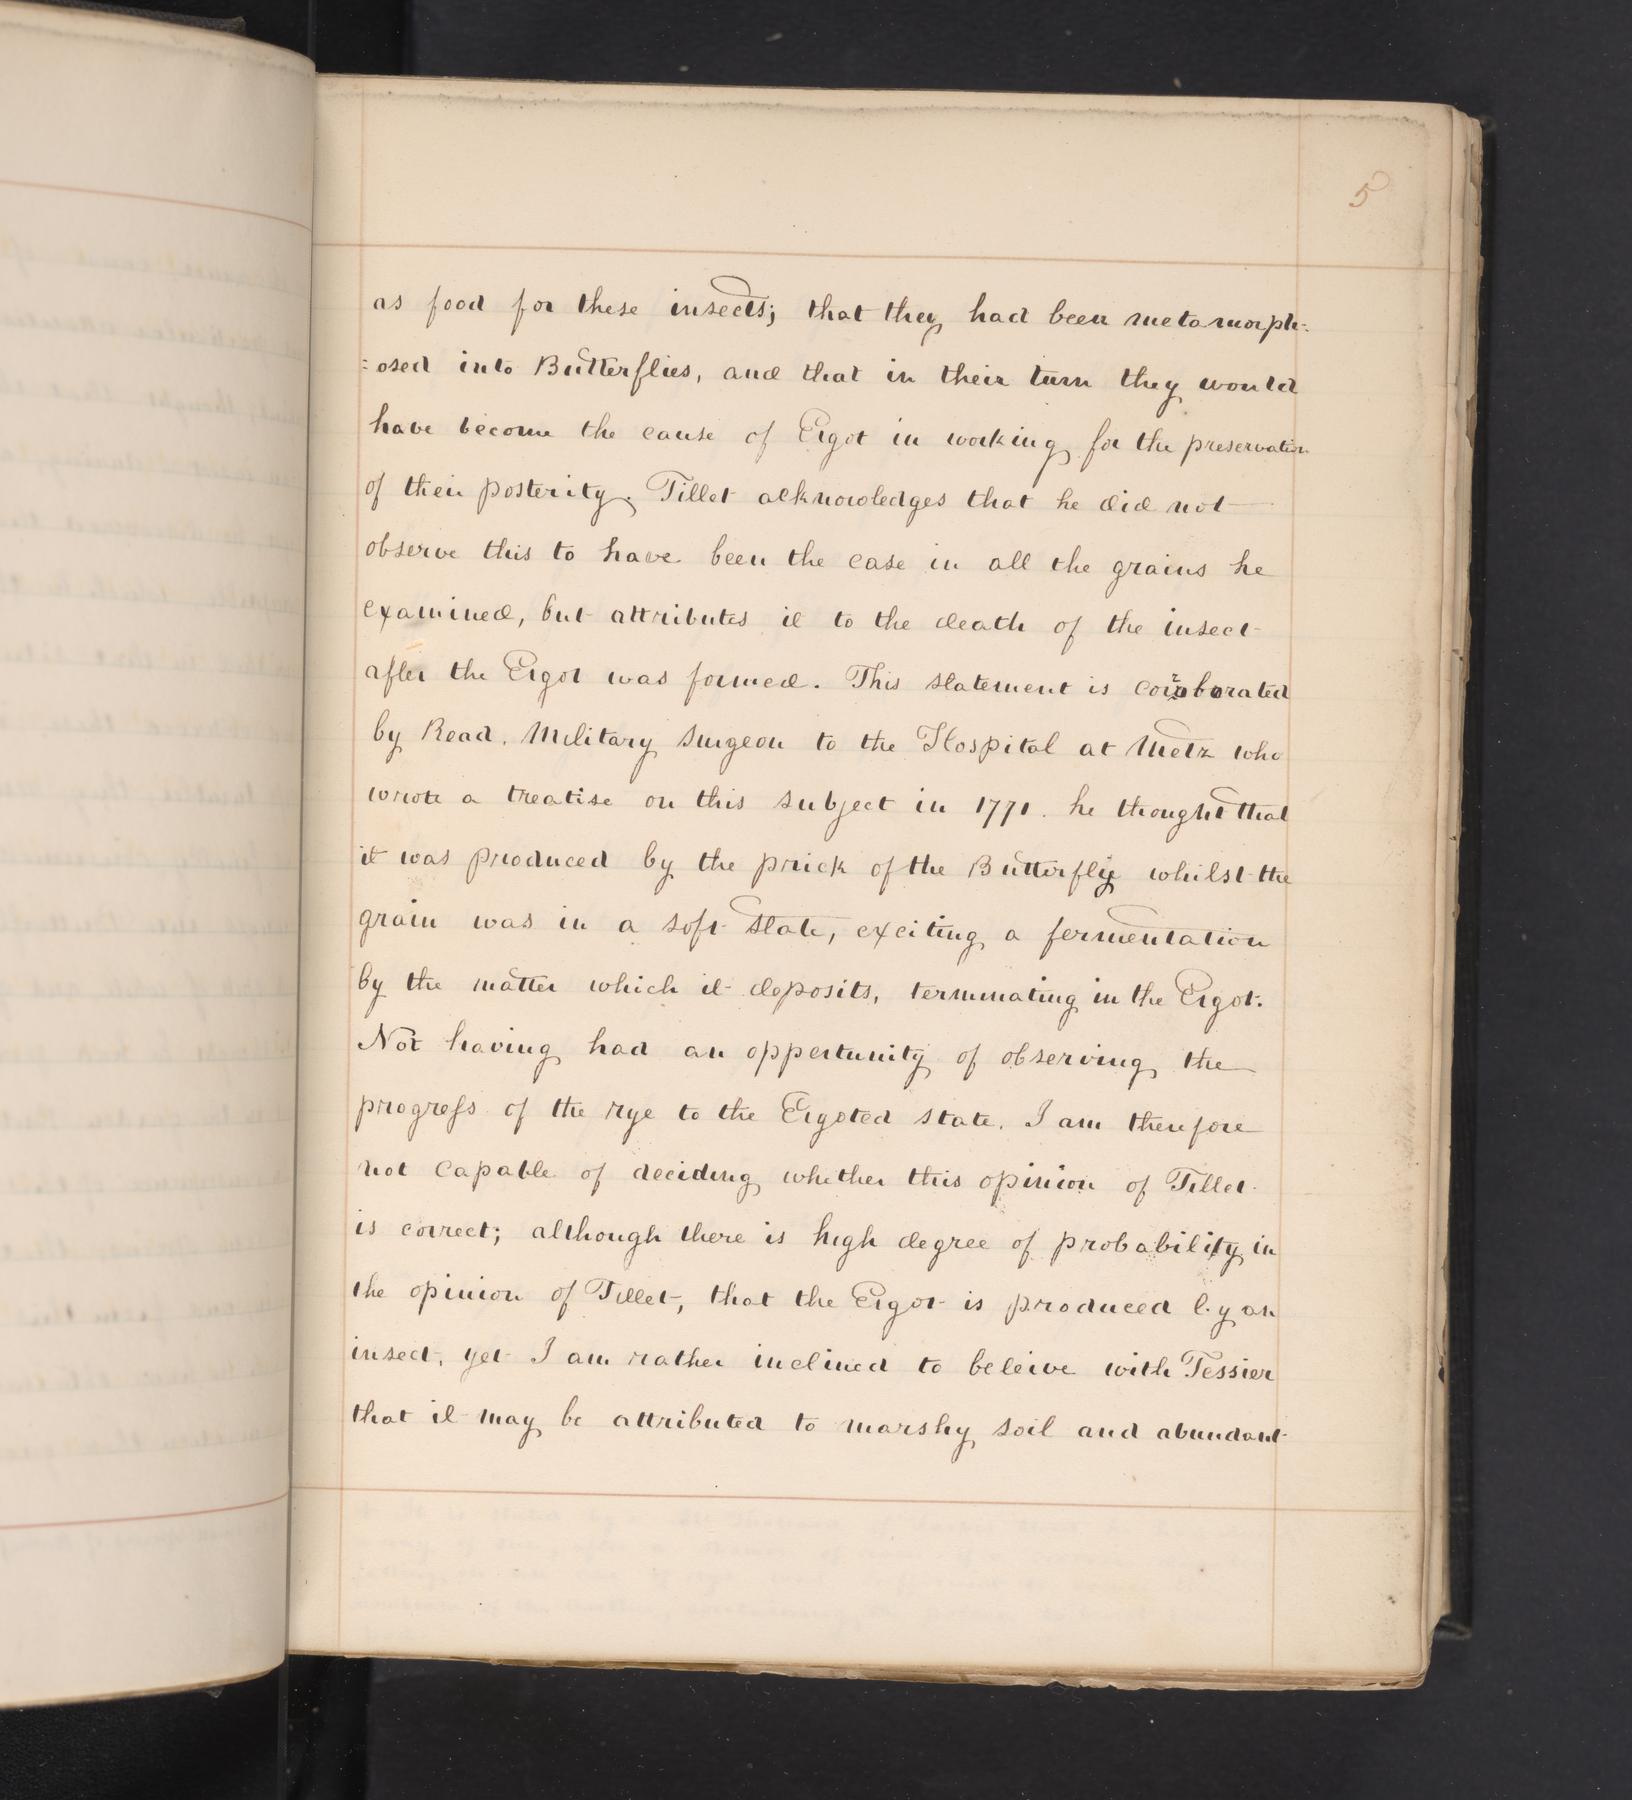 5
as food for these insects; that they had been metamorph:
:osed into Butterflies, and that in their turn they would
have become the cause of Ergot in working for the preservation
of their posterity. Tillet acknowledges that he did not
observe this to have been the case in all the grains he
examined, but attributes it to the death of the insect
after the Ergot was formed. This statement is corroborated
by Read. Military Surgeon to the Hospital at Metz who
wrote a treatise on this subject in 1771. he thought that
it was produced by the prick of the Butterfly whilst the
grain was in a soft state, exciting a fermentation
by the matter which it deposits, terminating in the Ergot.
Not having had an oppertunity of observing the
progress of the rye to the Ergoted state. I am therefore
not capable of deciding whether this opinion of Tillet
is correct; although there is high degree of probability in
the opinion of Tillet, that the Ergot is produced by an
insect, yet I am rather inclined to beleive with Tessier
that it may be attributed to marshy soil and abundant